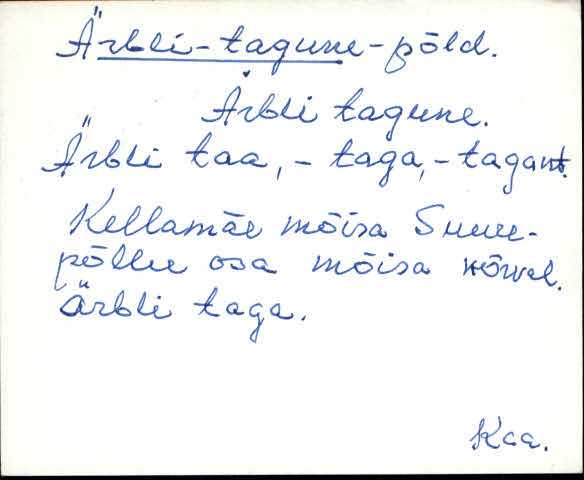 Ärbli-tagune-põld.
Ärbli tagune.
Ärbli taa, - taga, - tagant.
Kellamäe mõisa Suure-
põllu osa mõisa kõrval.
Ärbli taga.
Kaa.